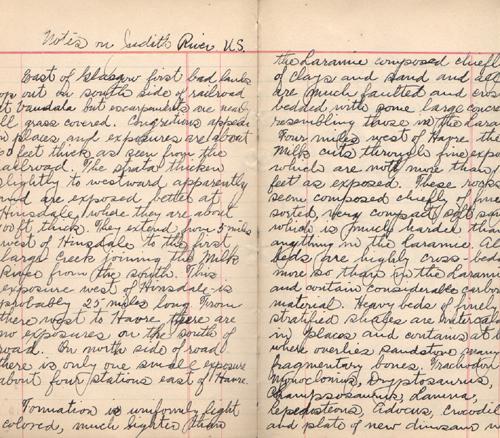 Notes on Judith River U.S.
East of Glasgow first bad lands
on out on south side of railroad
at Vandalia but escarpments are near
ll grass covered. Concretions appear
in places and exposures are about
0 feet thick as seen from the
railroad. The strata thicken
slightly to westward apparently
and are exposed better at
Hinsdale, where they are about
100 ft thick. They extend from 5 miles
west of Hinsdale to the first
large Creek joining the Milk
River from the south. This
exposure west of Hinsdale is
probably 25 miles long. From
there west to Havre there are
no exposures on the south of
road. On north side of road
there is only one small exposure
about four stations east of Havre.
Formation is uniformly light
colored, much lighter than
the Laramie composed chiefl
of clays and sand and all
are much faulted and eros
bedded with some large concre
resembling those in the Lara
Four miles west of Havre the
Milk cuts through fine expos
which are not more than
feet as exposed. These rocks
seem composed chiefly of fine
sorted, very compact soft sa
which is much harder than
anything in the Laramie. Al
beds are highly cross-bed
more so than of the Laram
and contain considerable carbo
material. Heavy beds of finely
stratified shales are intercala
in places and contains at b
where overlies sandstone many
fragmentary bones. Trachodon
Monoclonius, Dryptosaurus,
Champsosaurus, Lamna,
Lepidosteus, Adocus, crocodil
and plate of new dinosaur w